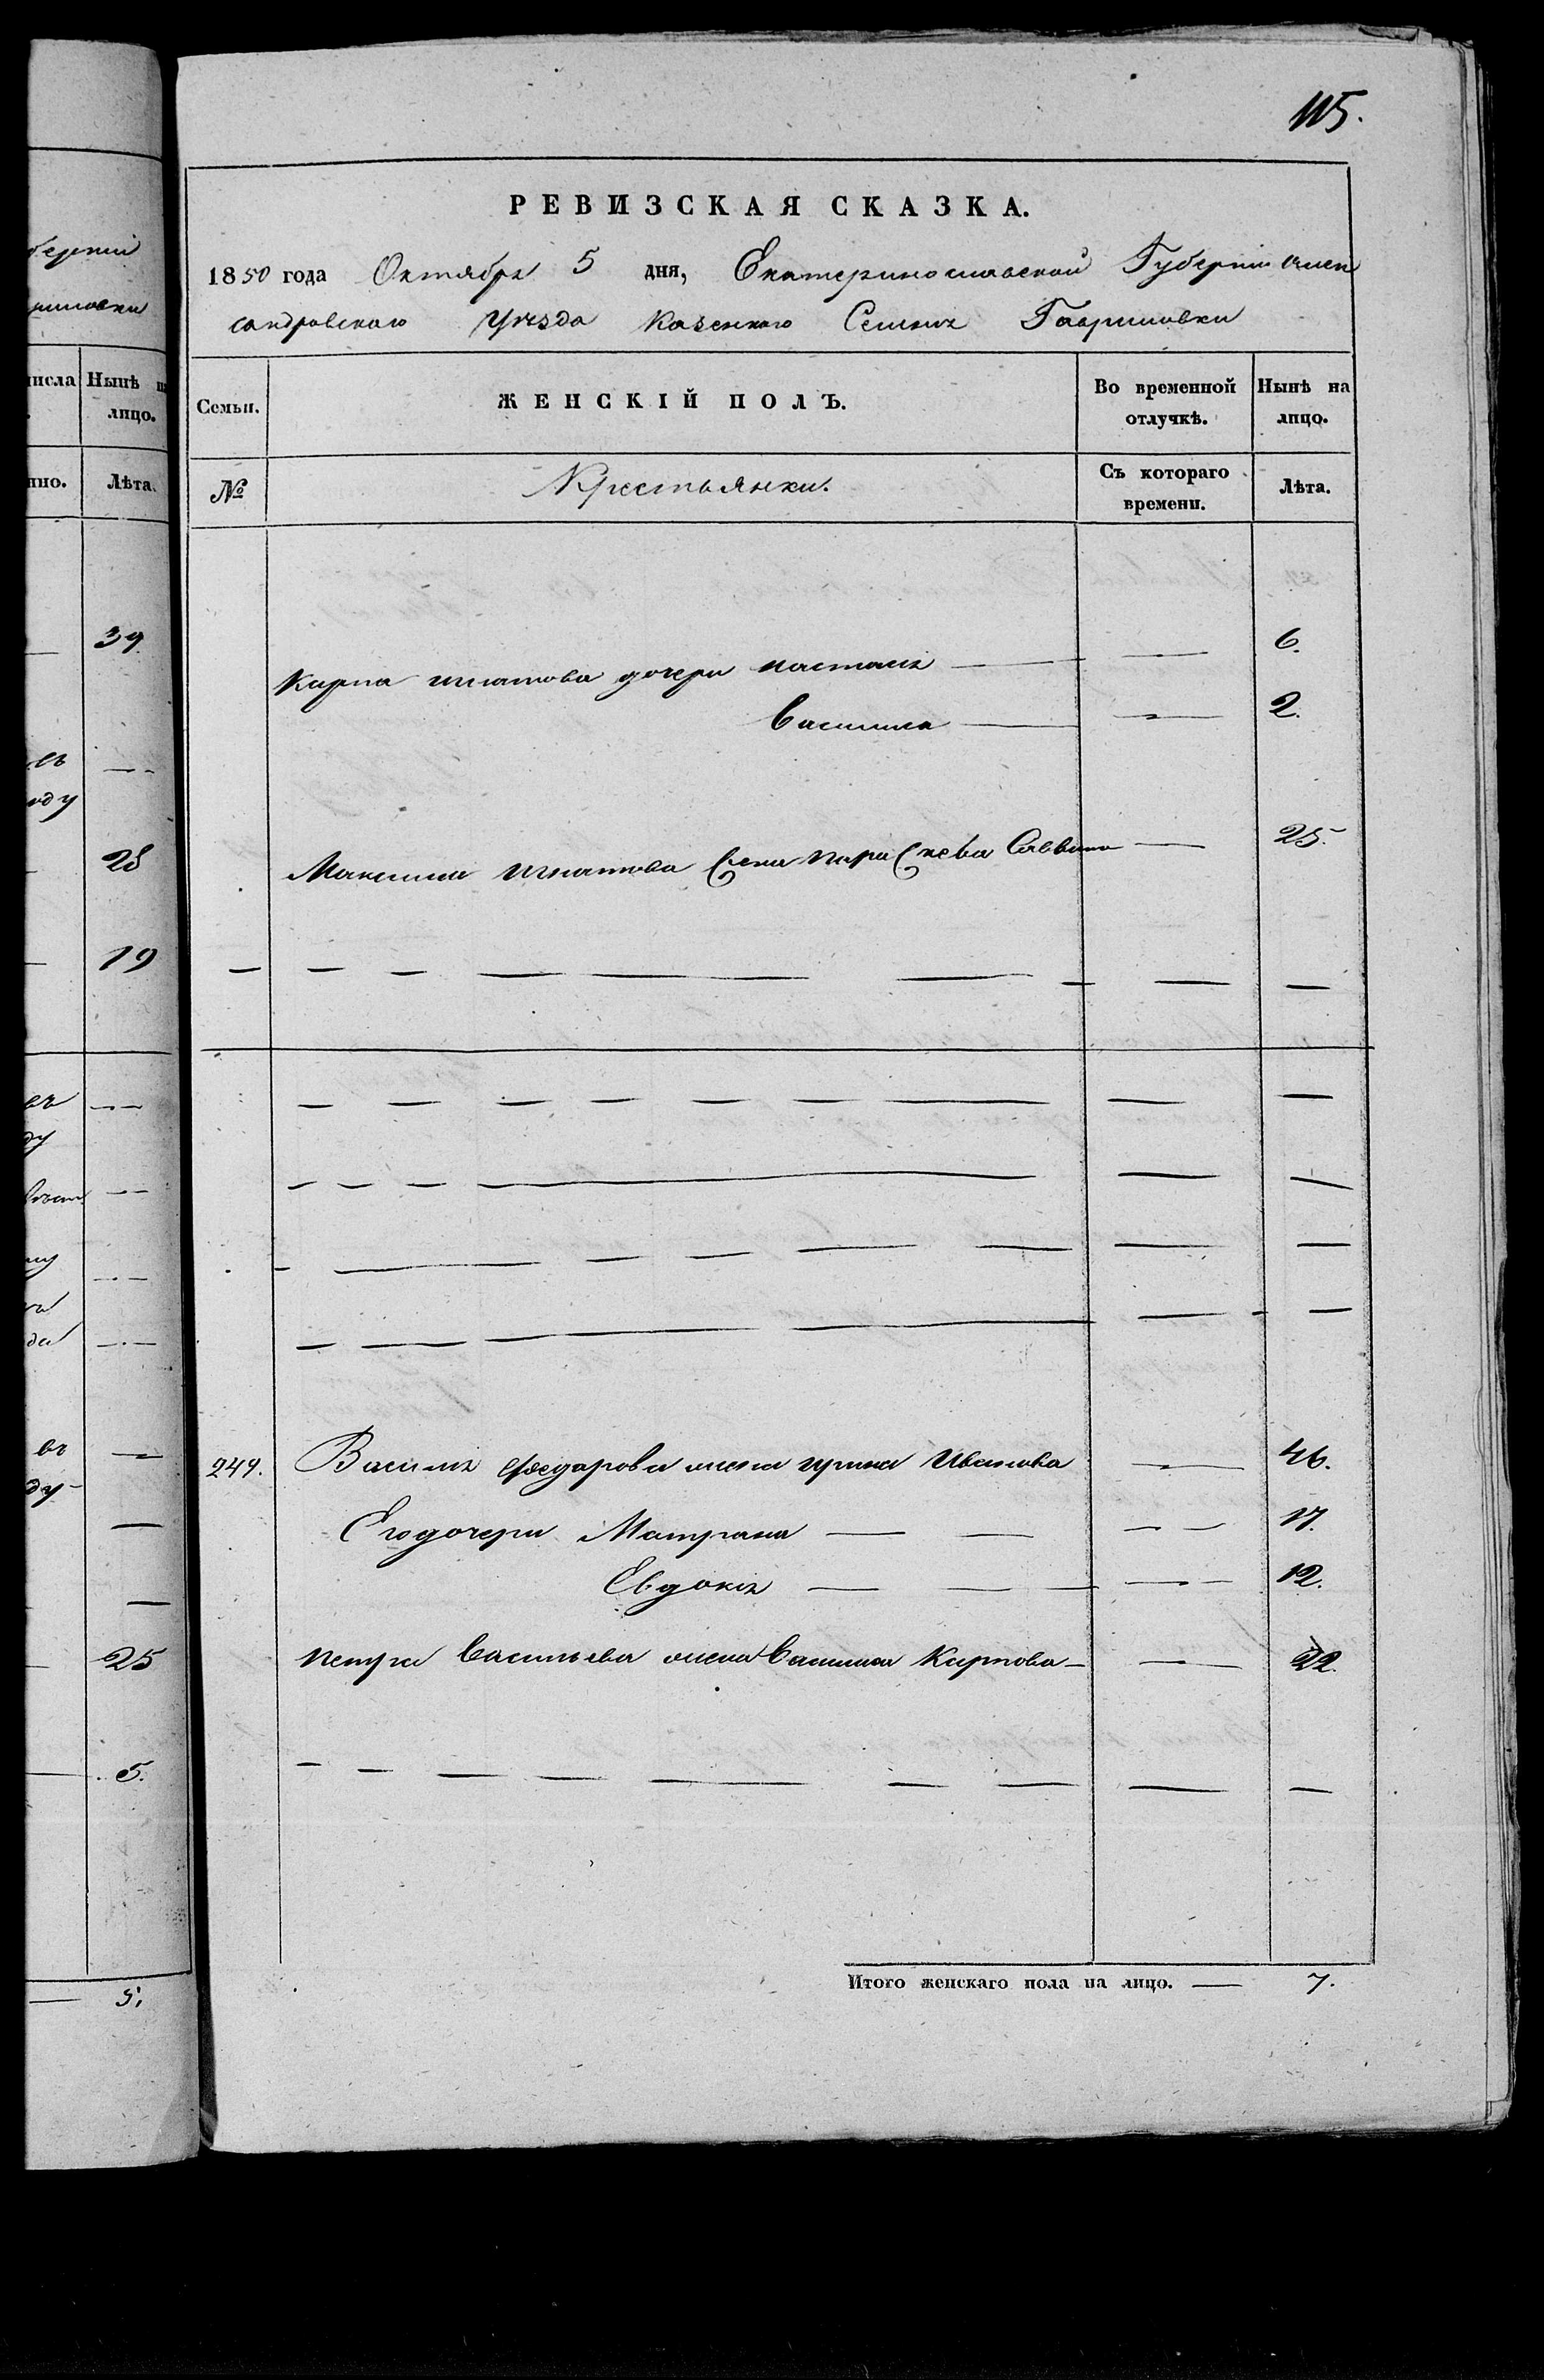 115.
РЕВИЗСКАЯ СКАЗКА.
1850 года Октября 5 дня, Екатеринославской Губерніи Алек
сандровскаго Уезда Казенного Селенія Гавриловки
Семьи. ЖЕНСКІЙ ПОЛЪ. Во временной отлучкѣ. Нынѣ на лицо.
№ Крестьянки. Съ котораго времени. Лѣта.
Карпа игнатова дочери настасія — — 6.
василиса — — 2.
Максима игнатова жена параскева Саввина — 25.
249. Василія федорова жена ирина иванова — 46.
Его дочери Матрона — — — 17.
Евдокія — — — 12.
петра васильева жена василиса карпова — — 22.
Итого женскаго пола на лицо. — 7.
числа Нынѣ на
лицо.
Лѣта.
39.
28
19
25
5.
5.